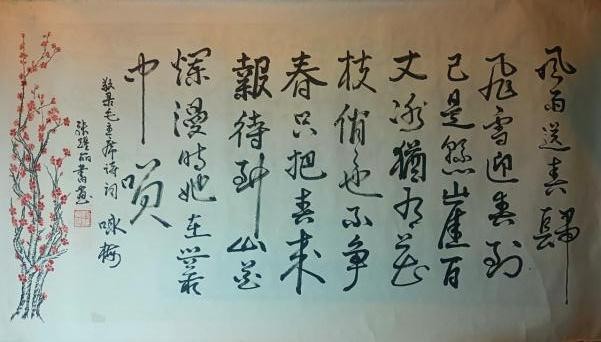 风雨送春歸
飛雪迎春到
已是懸崖百
丈冰猶有花
枝俏也不争
春只把春来
報待到山花
爛漫时她在叢
中笑
敬录毛主席诗词 咏梅
張 書画